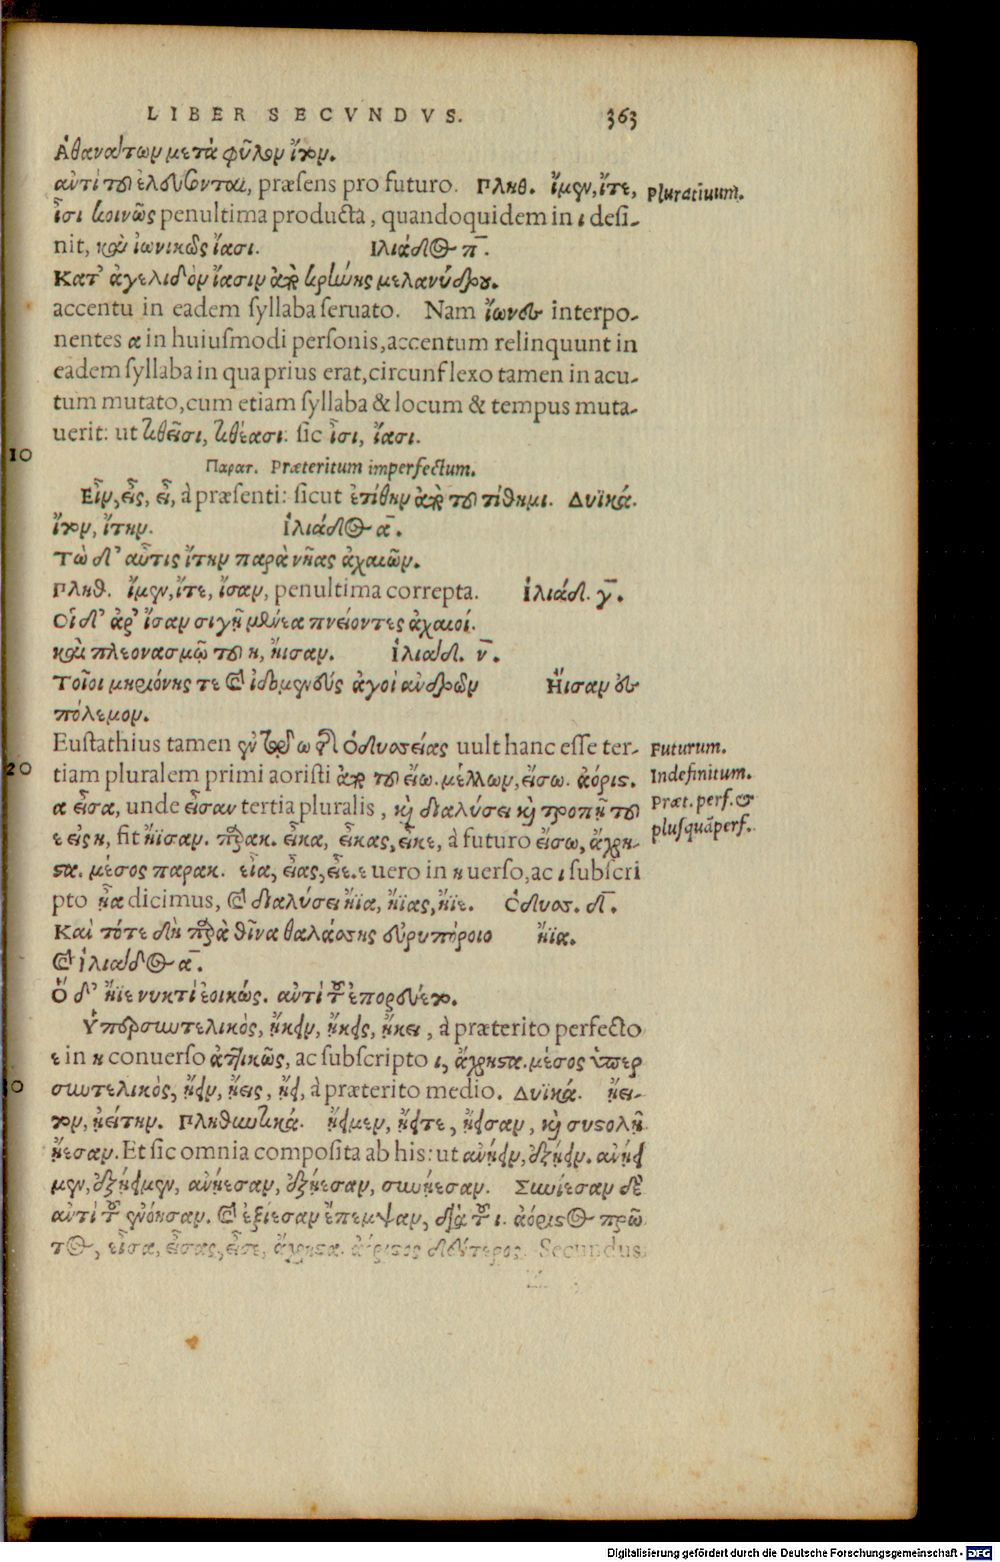 LIBER SECVNDVS. 363
Ἀθανάτων μετὰ φῦλον ἴτον.
αὐτὶ τοῦ ἐλεύσονται, præsens pro futuro. Πληθ. ἴμεν, ἴτε, Pluratiuum.
ἶσι κοινῶς penultima producta, quandoquidem in ι desi-
nit, καὶ ἰωνικῶς ἴασι. Ἰλιάδος π̄.
Κατ' ἀγεληδὸν ἴασιν ἀπὸ κρήνης μελανύδρου.
accentu in eadem syllaba seruato. Nam ἴωνες interpo-
nentes α in huiusmodi personis, accentum relinquunt in
eadem syllaba in qua prius erat, circunflexo tamen in acu-
tum mutato, cum etiam syllaba & locum & tempus muta-
uerit: ut τιθεῖσι, τιθέασι: sic ἶσι, ἴασι.
10
Παρατ. Præteritum imperfectum.
Εἶν, εἶς, εἶ, à præsenti: sicut ἐτίθην ἀπὸ τοῦ τίθημι. Δυϊκά.
ἴτον, ἴτην. Ἰλιάδος ᾱ.
Τὼ δ' αὖτις ἴτην παρὰ νῆας ἀχαιῶν.
Πληθ. ἴμεν, ἴτε, ἴσαν, penultima correpta. Ἰλιάδ. γ̄.
Οἱ δ' ἀρ' ἴσαν σιγῇ μένεα πνείοντες ἀχαιοί.
καὶ πλεονασμῷ τοῦ η, ἤισαν. Ἰλιάδ. ν̄.
Τοῖοι μηριόνης τε καὶ ἰδομενεὺς ἀγοὶ ἀνδρῶν Ἤισαν ἐς
πόλεμον.
Eustathius tamen ἐν τῷ ω τῆς Ὀδυσσείας uult hanc esse ter- Futurum.
20 tiam pluralem primi aoristi ἀπὸ τοῦ εἴω. μέλλων, εἴσω. ἀόρις. Indefinitum.
α εἶσα, unde εἶσαν tertia pluralis, καὶ διαλύσει καὶ τροπῇ τοῦ Præt. perf. &
ε εἰς η, fit ἤϊσαν. παρακ. εἶκα, εἶκας, εἶκε, à futuro εἴσω, ἄχρη- plusquāperf.
στα. μέσος παρακ. εἶα, εἶας, εἶε. ε uero in η uerso, ac ι subscri
pto ᾖα dicimus, καὶ διαλύσει ἤϊα, ἤϊας, ἤϊε. Ὀδυσσ. δ̄.
Καὶ τότε δὴ παρὰ θῖνα θαλάσσης εὐρυπόροιο ἤϊα.
καὶ ἰλιάδος ᾱ.
Ὃ δ' ἤϊε νυκτὶ ἐοικώς. αὐτὶ τοῦ ἐπορεύετο.
Ὑπερσυντελικὸς, ᾔκειν, ᾔκεις, ᾔκει, à præterito perfecto
ε in η conuerso ἀττικῶς, ac subscripto ι, ἄχρηστα. μέσος ὑπερ
συντελικὸς, ᾔειν, ᾔεις, ᾔει, à præterito medio. Δυϊκά. ᾔει-
τον, ᾐείτην. Πληθυντικά. ᾔειμεν, ᾔειτε, ᾔεισαν, καὶ συστολῇ
ᾔεσαν. Et sic omnia composita ab his: ut ἀνῄειν, ἐξῄειν. ἀνῄει
μεν, ἐξῄειμεν, ἀνῄεσαν, ἐξῄεσαν, συνῄεσαν. Συνίεσαν δὲ
αὐτὶ τοῦ ἐνόησαν. καὶ ἐξίεσαν ἔπεμψαν, διὰ τοῦ ι. ἀόριστος πρῶ
τος, εἶσα, εἶσας, εἶσε, ἄχρηστα. ἀόριστος δεύτερος. Secundus
Z
Digitalisierung gefördert durch die Deutsche Forschungsgemeinschaft - DFG